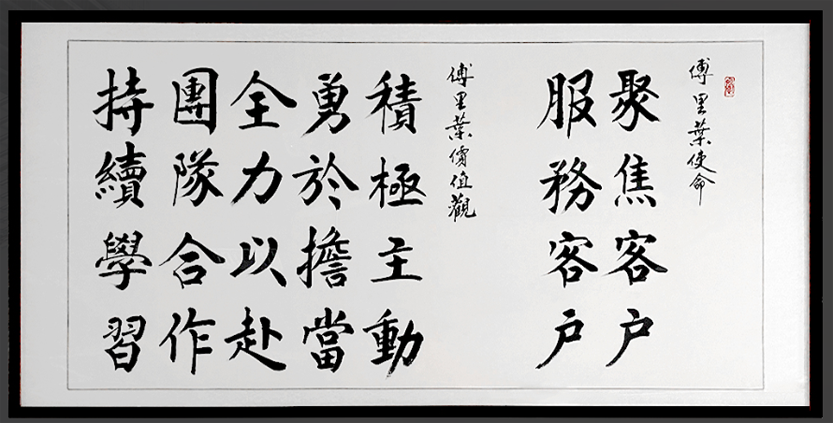 傅里葉使命
聚焦客户
服務客户
傅里葉價值觀
積極主動
勇於擔當
全力以赴
團隊合作
持續學習